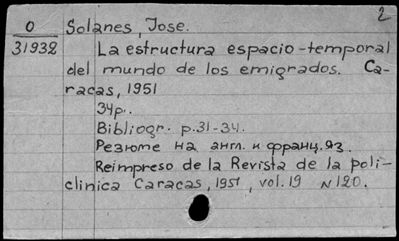 2
0 Solanes, Jose.
31932 La estructura espacio-temporal
del mundo de los emigrados. Ca-
racas, 1951
34p.
Bibliogr. p.31-34.
Резюме на англ. и франц. яз.
Reimpreso de la Revista de la poli-
clinica Caracas, 1951, vol.19 N120.